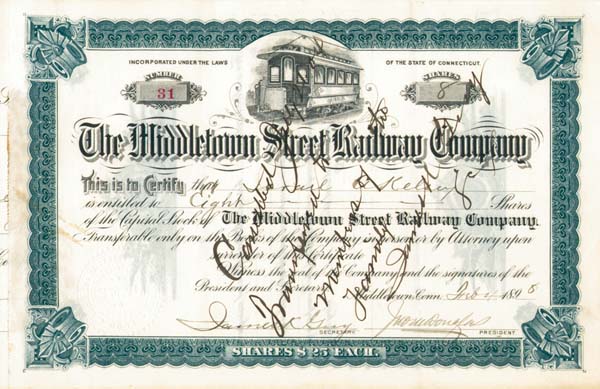 INCORPORATED UNDER THE LAWS OF THE STATE OF CONNECTICUT.
NUMBER SHARES
31 8
The Middletown Street Railway Company
This is to Certify that
is entitled to Eight Shares
of the Capital Stock of The Middletown Street Railway Company.
Transferable only on the Books of the Company in person or by Attorney upon
surrender of this Certificate
Witness the seal of the Company and the signatures of the
President and Secretary. Middletown, Conn. 189
SECRETARY. PRESIDENT.
SHARES $25 EACH.
Cancelled
Transferred to